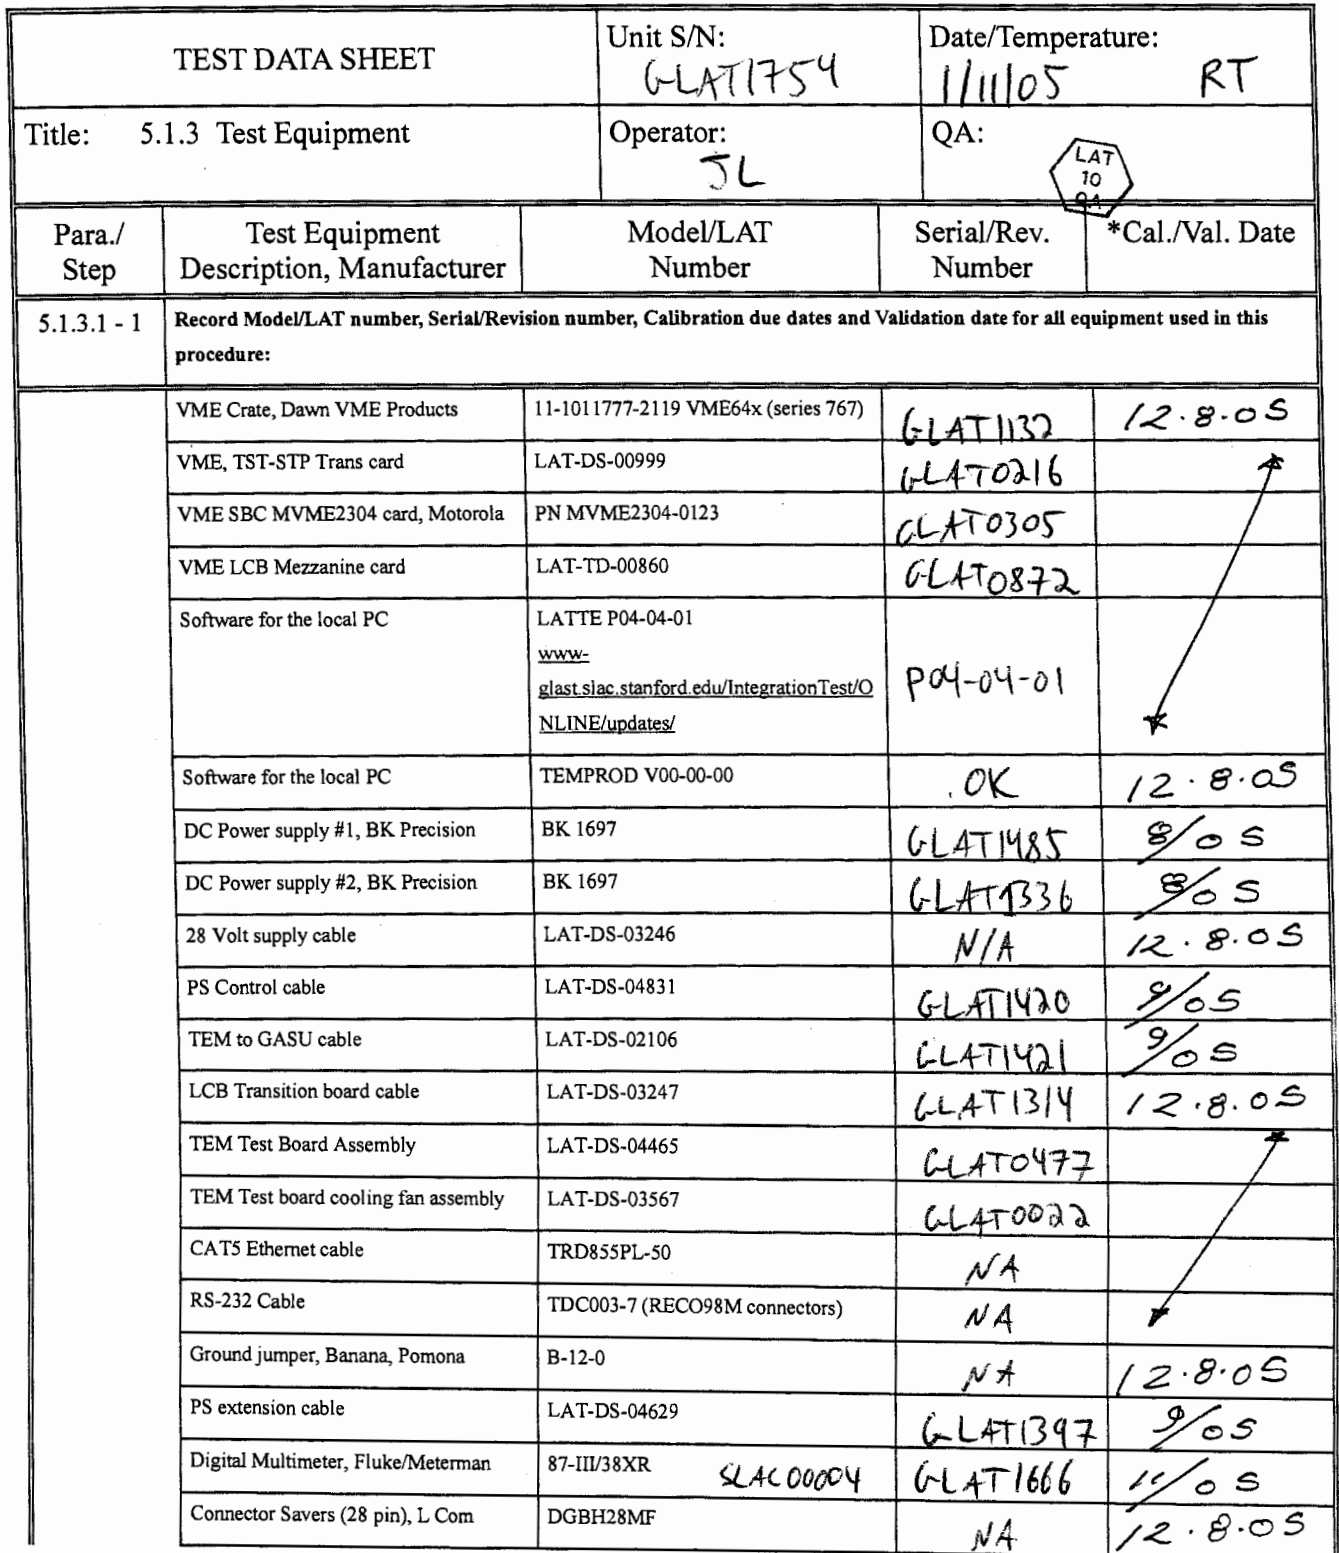 TEST DATA SHEET
Unit S/N:
GLAT1754
Date/Temperature:
1/11/05 RT
Title: 5.1.3 Test Equipment
Operator:
JL
QA:
LAT
10
QA
Para./
Step
Test Equipment
Description, Manufacturer
Model/LAT
Number
Serial/Rev.
Number
*Cal./Val. Date
5.1.3.1 - 1
Record Model/LAT number, Serial/Revision number, Calibration due dates and Validation date for all equipment used in this
procedure:
VME Crate, Dawn VME Products 11-1011777-2119 VME64x (series 767) GLAT1132 12.8.05
VME, TST-STP Trans card LAT-DS-00999 GLAT0216
VME SBC MVME2304 card, Motorola PN MVME2304-0123 GLAT0305
VME LCB Mezzanine card LAT-TD-00860 GLAT0872
Software for the local PC LATTE P04-04-01
www-
glast.slac.stanford.edu/IntegrationTest/O
NLINE/updates/
P04-04-01
Software for the local PC TEMPROD V00-00-00 OK 12.8.05
DC Power supply #1, BK Precision BK 1697 GLAT1485 8/05
DC Power supply #2, BK Precision BK 1697 GLAT1336 8/05
28 Volt supply cable LAT-DS-03246 N/A 12.8.05
PS Control cable LAT-DS-04831 GLAT1420 9/05
TEM to GASU cable LAT-DS-02106 GLAT1421 9/05
LCB Transition board cable LAT-DS-03247 GLAT1314 12.8.05
TEM Test Board Assembly LAT-DS-04465 GLAT0477
TEM Test board cooling fan assembly LAT-DS-03567 GLAT0022
CAT5 Ethernet cable TRD855PL-50 NA
RS-232 Cable TDC003-7 (RECO98M connectors) NA
Ground jumper, Banana, Pomona B-12-0 NA 12.8.05
PS extension cable LAT-DS-04629 GLAT1397 9/05
Digital Multimeter, Fluke/Meterman 87-III/38XR SLAC00004 GLAT1666 11/05
Connector Savers (28 pin), L Com DGBH28MF NA 12.8.05